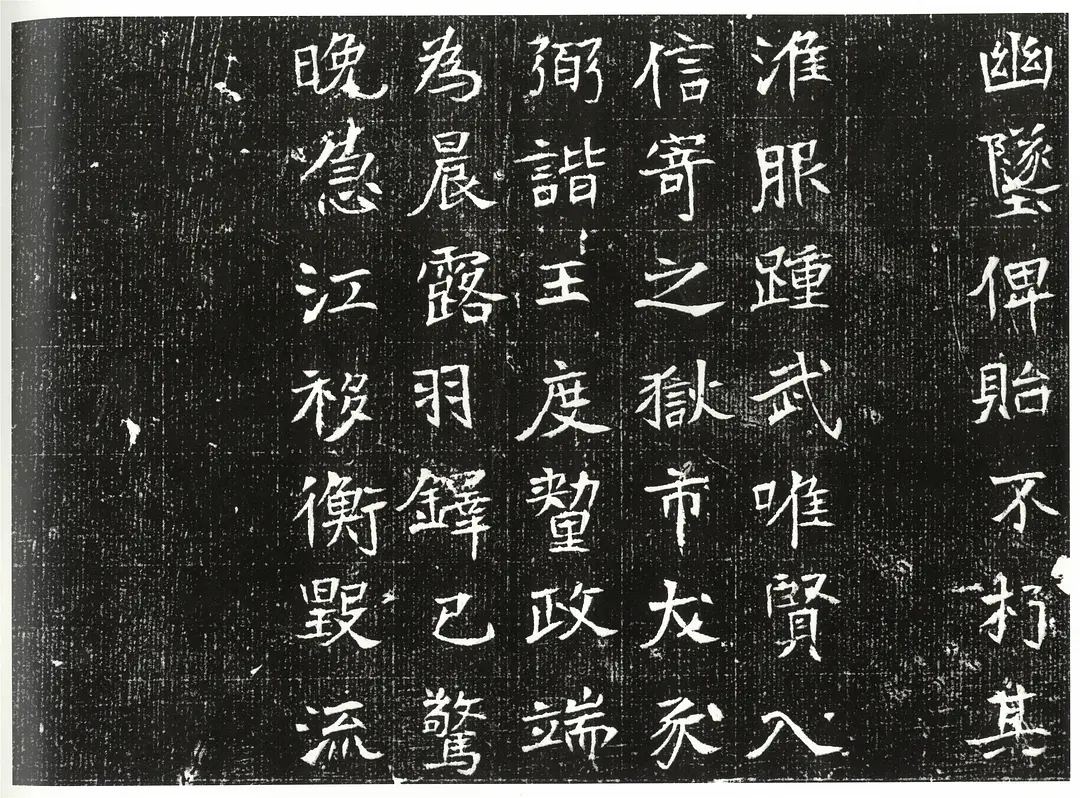 幽墜俾貽不朽其
淮服踵武唯賢入
信寄之獄市犮豕
弼諧王度釐政端
為晨露羽鐸已驚
晚急江移衡毀流